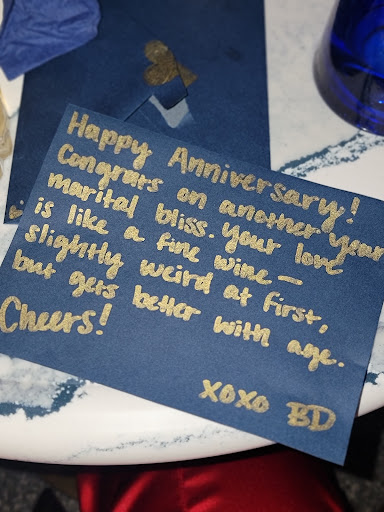 Happy Anniversary!
Congrats on another year
marital bliss. Your love
is like a fine wine—
slightly weird at first,
but gets better with age.
Cheers!
XOXO BD